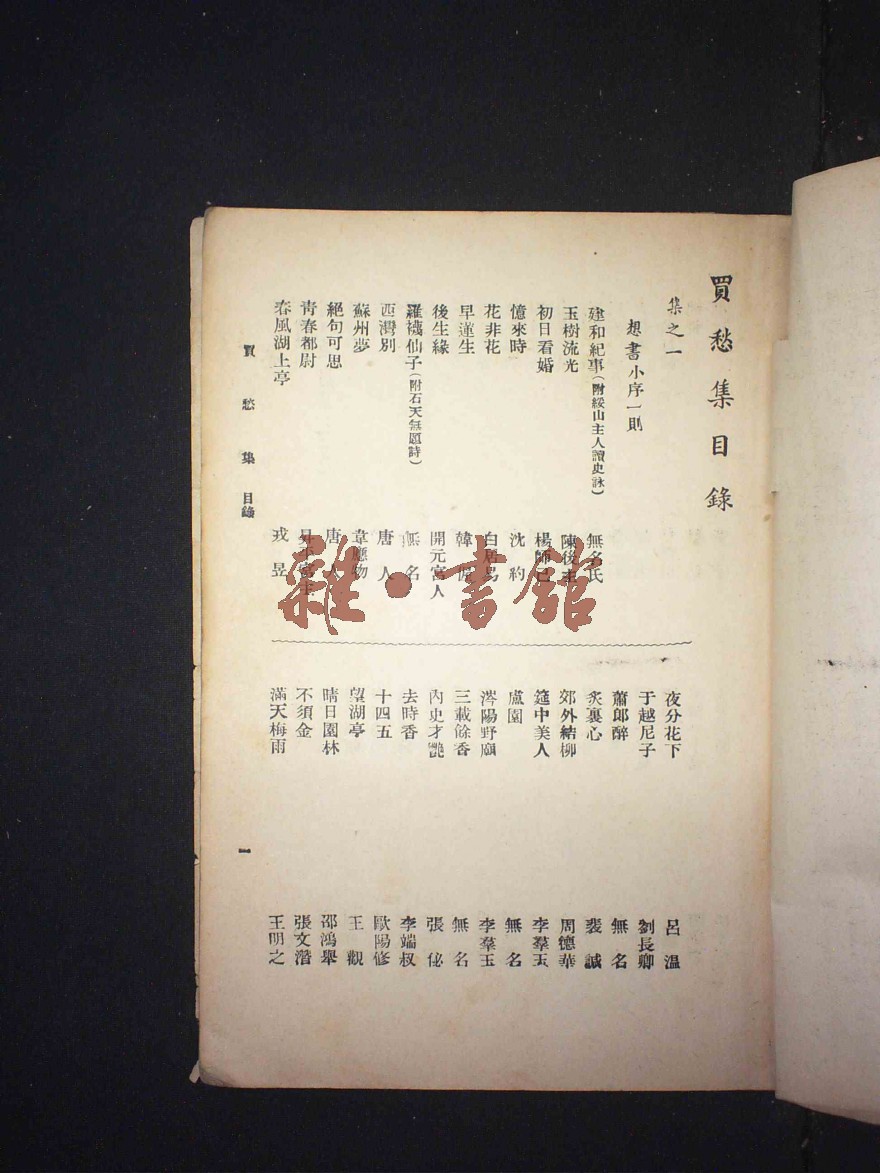 買愁集目錄
集之一
想書小序一則
建和紀事(附綏山主人讀史詠) 無名氏
玉樹流光 陳後主
初日看婚 楊師己
憶來時 沈約
花非花 白居易
早蓮生 韓
後生緣 開元宮人
羅襪仙子(附石天無題詩) 無名
西灣別 唐人
蘇州夢 韋應物
絕句可思 唐
青春都尉
春風湖上亭 戎昱
夜分花下 呂溫
于越尼子 劉長卿
蕭郎醉 無名
炙裏心 裴諴
郊外結柳 周德華
筵中美人 李羣玉
盧園 無名
涔陽野廟 李羣玉
三載餘香 無名
內史才艷 張佖
去時香 李端叔
十四五 歐陽修
望湖亭 王觀
晴日園林 邵鴻舉
不須金 張文潛
滿天梅雨 王明之
買愁集 目錄
一
雜·書館